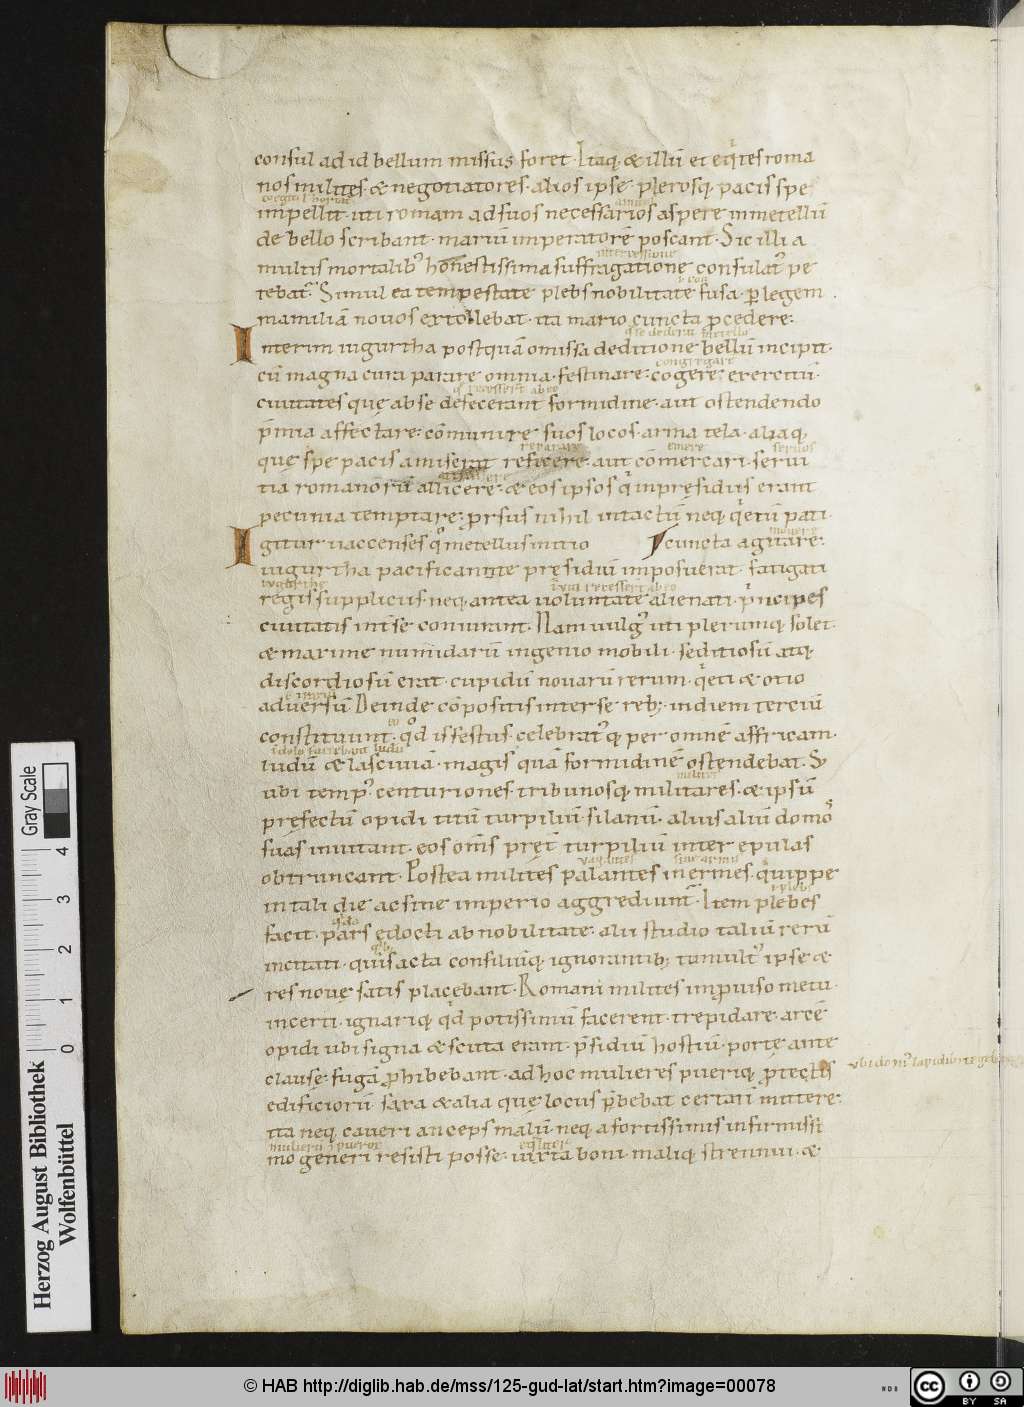 consul ad id bellum missus foret. Itaq; & illū et eq̇tes roma
nos milites & negotiatores. alios ipse plerosq; pacis spe
impellit. uti romam ad suos necessarios aspere in metellū
de bello scribant. mariū imperatorē poscant. Sic illi a
multis mortalib; honestissima suffragatione consulat᷒ pe
tebat᷒. Simul ea tempestate plebs nobilitate fusa. p̄ legem
mamiliā novos extollebat. ita mario cuncta p̄cedere.
Interim iugurtha postquā omissa deditione bellū incipit.
cū magna cura parare omnia. festinare. cogere exercitū.
ciuitates quę ab se defecerant formidine. aut ostendendo
p̄mia affectare. cōmunire suos locos. arma tela. aliaq;
quę spe pacis amiserat reficere. aut cōmercari. serui
tia romanorū allicere. & eos ipsos q̇ in pręsidiis erant
pecunia temptare. p̄rsus nihil intactū neq; q̇etū pati
Igitur uaccenses q̊ metellus initio cuncta agitare.
iugurtha pacificante presidiū imposuerat. fatigati
regis suppliciis. neq; antea uoluntate alienati. p̄ncipes
ciuitatis int̄ se coniurant. Nam uulg᷒ uti plerumq; solet.
& maxime numidarū ingenio mobili. seditiosū atq;
discordiosū erat. cupidū novarū rerum. q̇eti & otio
aduersū Deinde cōpositis inter se reb; in diem terciū
constituunt. q̊d is festus celebrat᷒q; per omnē affricam.
ludū & lasciuiā. magis quā formidinē ostendebat. S;
ubi temp᷒. centuriones. tribunosq; militares. & ipsū
pręfectū opidi titū turpiliū silanū. alius aliū domo᷒
suas inuitant. eos om̄s pręt̄ turpiliū inter epulas
obtruncant. Postea milites palantes inermes. quippe
in tali die ac sine imperio aggrediunt᷒. Item plebes
facit. pars edocti ab nobilitate. alii studio taliū rerū
incitati. quis acta consiliūq; ignorantib; tumult᷒ ipse &
res nouę satis placebant. Romani milites imp̄uiso metu.
incerti. ignariq; q̇d potissimū facerent. trepidare. arcē
opidi ubi signa & scuta erant. p̄sidiū hostiū. porte ante
clause fugā p̄hibebant. ad hoc mulieres pueriq; p̄ tectis
edificiorū saxa & alia quę locus p̄bebat certatī mittere.
ita neq; caueri anceps malū. neq; a fortissimis infirmissi
mo generi resisti posse. iuxta boni maliq; strennui. &
Gray Scale
4 3 2 1 0
Herzog August Bibliothek
Wolfenbüttel
© HAB http://diglib.hab.de/mss/125-gud-lat/start.htm?image=00078
cc BY SA